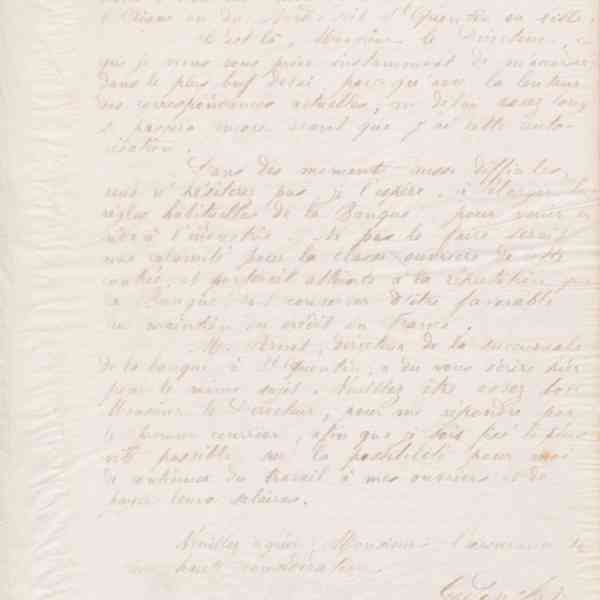 l'Oisne ou du Nord soit St Quentin ou
C'est là, Monsieur le Directeur,
que je viens vous prier instamment de m'accorder
dans le plus bref délai, parce qu'avec la lenteur
des correspondances actuelles, un délai assez long
se passera encore avant que j'aie cette auto-
risation.
Dans des moments aussi difficiles,
vous n'hésiterez pas, je l'espère, à élargir les
règles habituelles de la Banque pour venir en
aide à l'industrie. Ne pas le faire serait
une calamité pour la classe ouvrière de cette
contrée, et porterait atteinte à la réputation que
la Banque doit conserver d'être favorable
au maintien du crédit en France.
M. directeur de la succursale
de la banque à St Quentin, a du vous écrire hier
pour le même sujet. Veuillez être assez bon
Monsieur le Directeur, pour me répondre par
le premier courrier, afin que je sois fixé le plus
vite possible sur la possibilité pour moi
de continuer du travail à mes ouvriers et de
payer leurs salaires.
Veuillez agréer, Monsieur l'assurance de
ma haute considération.